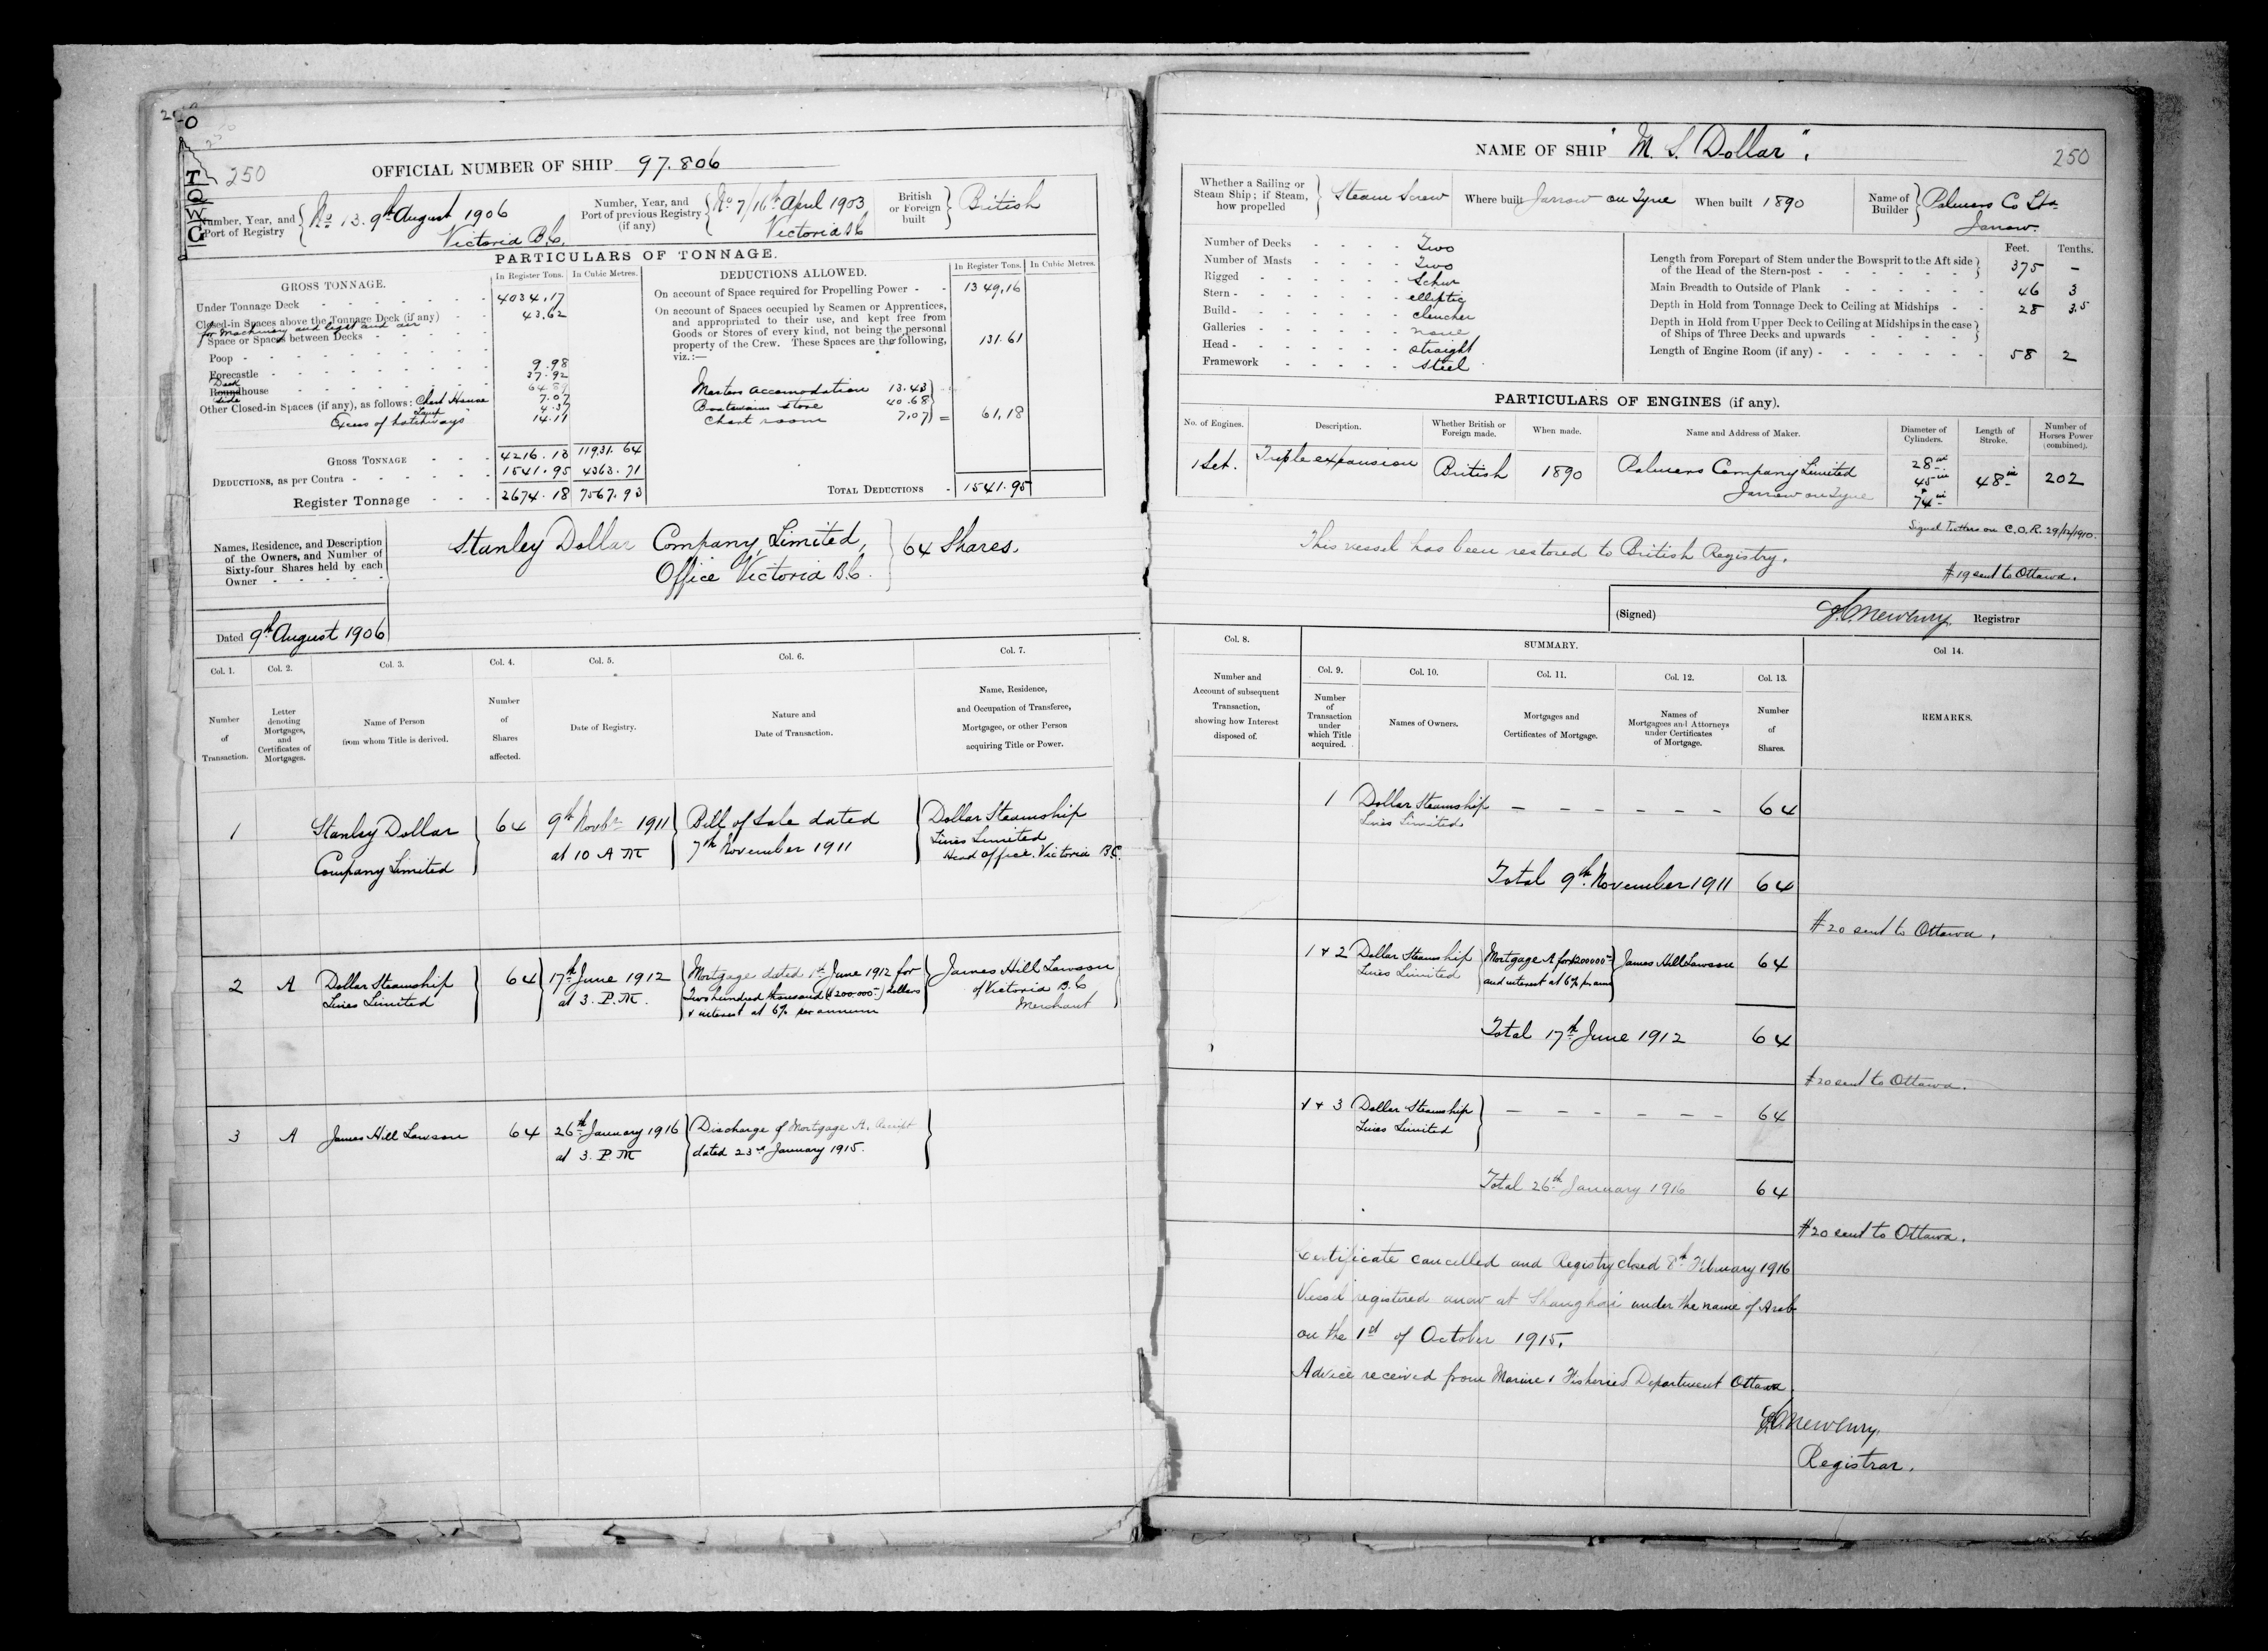 250
OFFICIAL NUMBER OF SHIP 97.806
Number, Year, and
Port of Registry
No 13. 9th August 1906
Victoria B.C.
Number, Year, and
Port of previous Registry
(if any)
No 7/16th April 1903
Victoria BC
British
or Foreign
built
British
PARTICULARS OF TONNAGE.
GROSS TONNAGE.
In Register Tons.
In Cubic Metres.
Under Tonnage Deck 4034.17
Closed-in Spaces above the Tonnage Deck (if any) 43.62
for Machinery and light and air
Space or Spaces between Decks
Poop 9.98
Forecastle 37.92
Deck
Roundhouse 64.89
side
Other Closed-in Spaces (if any), as follows: Chart House 7.07
Lamp 4.37
Excess of hatchways 14.11
GROSS TONNAGE 4216.13 11931.64
DEDUCTIONS, as per Contra 1541.95 4363.71
Register Tonnage 2674.18 7567.93
DEDUCTIONS ALLOWED.
In Register Tons.
In Cubic Metres.
On account of Space required for Propelling Power 1349.16
On account of Spaces occupied by Seamen or Apprentices,
and appropriated to their use, and kept free from
Goods or Stores of every kind, not being the personal
property of the Crew. These Spaces are the following, 131.61
viz.:—
Masters accomodation 13.43
Boatswains store 40.68
Chart room 7.07 = 61.18
TOTAL DEDUCTIONS 1541.95
Names, Residence, and Description
of the Owners, and Number of
Sixty-four Shares held by each
Owner
Stanley Dollar Company, Limited,
Office Victoria B.C.
64 Shares.
Dated 9th August 1906
Col. 1.
Col. 2.
Col. 3.
Col. 4.
Col. 5.
Col. 6.
Col. 7.
Number
of
Transaction.
Letter
denoting
Mortgages,
and
Certificates of
Mortgages.
Name of Person
from whom Title is derived.
Number
of
Shares
affected.
Date of Registry.
Nature and
Date of Transaction.
Name, Residence,
and Occupation of Transferee,
Mortgagee, or other Person
acquiring Title or Power.
1
Stanley Dollar
Company Limited
64
9th Novbr 1911
at 10 A M
Bill of Sale dated
7th November 1911
Dollar Steamship
Lines Limited
Head office. Victoria B.C.
2
A
Dollar Steamship
Lines Limited
64
17th June 1912
at 3. P.M.
Mortgage dated 1st June 1912 for
Two hundred thousand ($200.000-) dollars
& interest at 6% per annum
James Hill Lawson
of Victoria B.C
Merchant
3
A
James Hill Lawson
64
26th January 1916
at 3. P.M
Discharge of Mortgage A. Receipt
dated 23rd January 1915.
NAME OF SHIP "M. S. Dollar".
250
Whether a Sailing or
Steam Ship; if Steam,
how propelled
Steam Screw
Where built Jarrow on Tyne
When built 1890
Name of
Builder
Palmers Co Ltd
Jarrow.
Number of Decks Two
Number of Masts Two
Rigged Schnr
Stern elliptic
Build clencher
Galleries none
Head straight
Framework Steel
Feet.
Tenths.
Length from Forepart of Stem under the Bowsprit to the Aft side
of the Head of the Stern-post 375 –
Main Breadth to Outside of Plank 46 3
Depth in Hold from Tonnage Deck to Ceiling at Midships 28 3.5
Depth in Hold from Upper Deck to Ceiling at Midships in the case
of Ships of Three Decks and upwards
Length of Engine Room (if any) 58 2
PARTICULARS OF ENGINES (if any).
No. of Engines.
Description.
Whether British or
Foreign made.
When made.
Name and Address of Maker.
Diameter of
Cylinders.
Length of
Stroke.
Number of
Horses Power
(combined).
1 Set.
Triple expansion
British
1890
Palmers Company Limited
Jarrow on Tyne
28 in
45 in
74 in
48 in
202
on C.O.R. 29/12/1910.
This vessel has been restored to British Registry.
#19 sent to Ottawa.
(Signed)
Newbury
Registrar
Col. 8.
SUMMARY.
Col. 9.
Col. 10.
Col. 11.
Col. 12.
Col. 13.
Col 14.
Number and
Account of subsequent
Transaction,
showing how Interest
disposed of.
Number
of
Transaction
under
which Title
acquired.
Names of Owners.
Mortgages and
Certificates of Mortgage.
Names of
Mortgagees and Attorneys
under Certificates
of Mortgage.
Number
of
Shares.
REMARKS.
1
Dollar Steamship
Lines Limited
– – – – – –
64
Total 9th November 1911 64
#20 sent to Ottawa.
1 & 2
Dollar Steamship
Lines Limited
Mortgage A for $200000-
and interest at 6% per ann
James Hill Lawson
64
Total 17th June 1912 64
#20 sent to Ottawa.
1 & 3
Dollar Steamship
Lines Limited
– – – – – –
64
Total 26th January 1916 64
#20 sent to Ottawa.
Certificate cancelled and Registry closed 8th February 1916
Vessel registered anew at Shanghai under the name of Arab
on the 1st of October 1915.
Advice received from Marine & Fisheries Department Ottawa.
Newbury
Registrar.